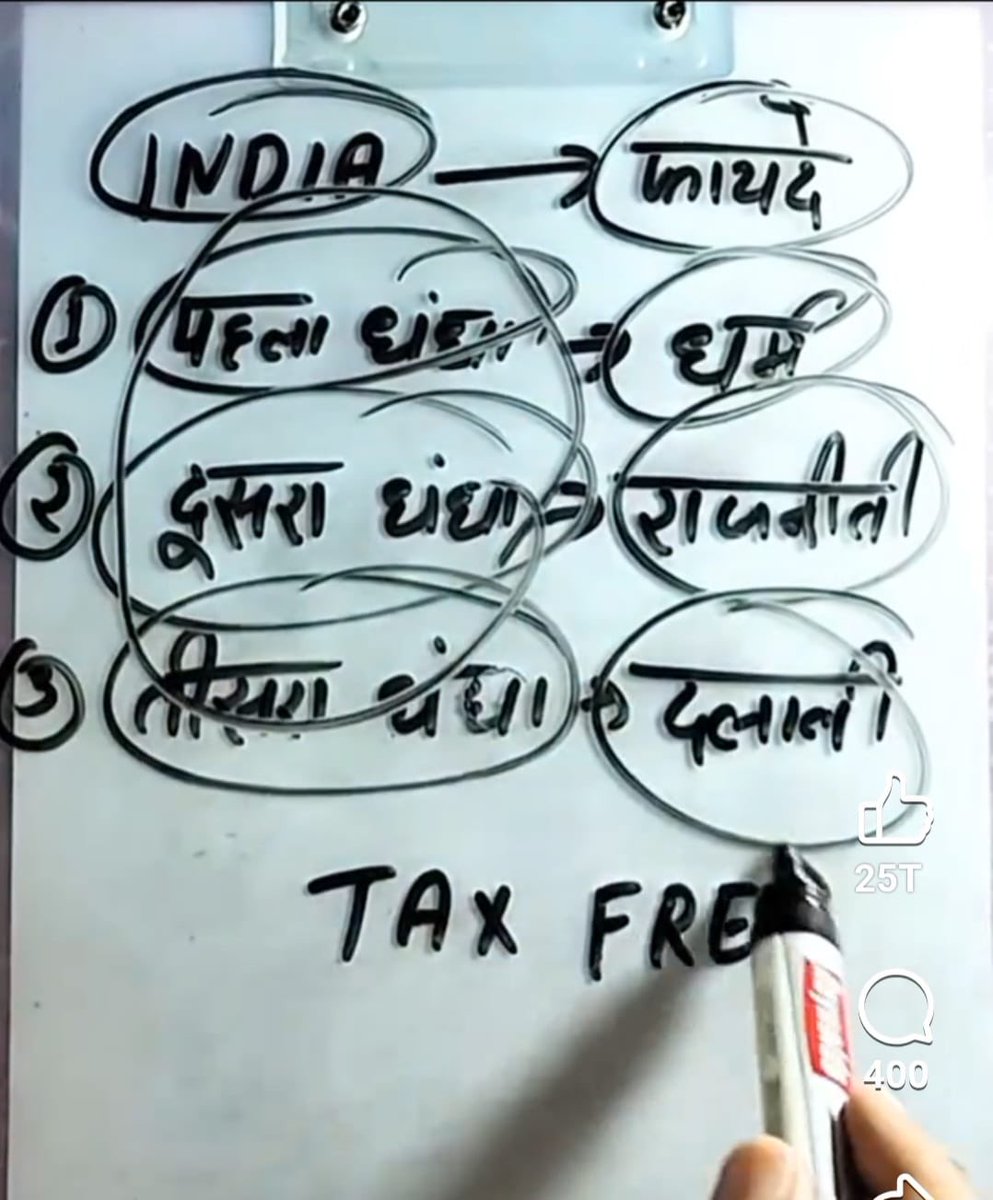 INDIA → फायदे
① पहला धंधा → धर्म
② दूसरा धंधा → राजनीती
③ तीसरा धंधा → दलाली
TAX FRE
25T
400